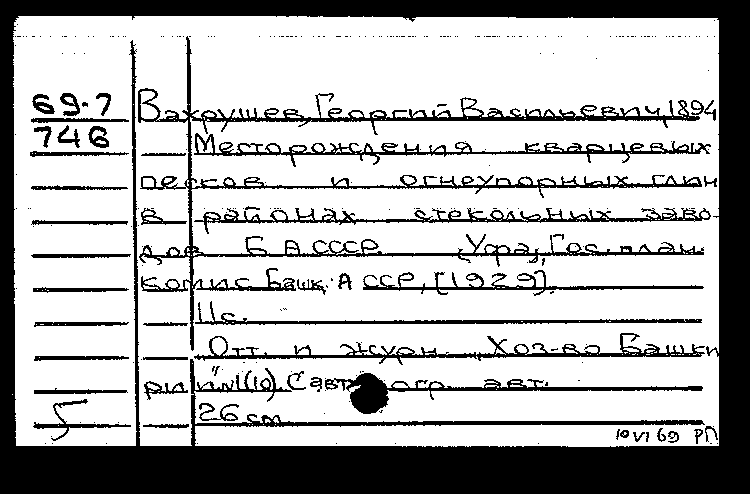 69-7 Вахрушев, Георгий Васильевич, 1894
746 Месторождения кварцевых
песков и огнеупорных глин
в районах стекольных заво-
дов БАССР. [Уфа], Гос. план.
комис. Башк. АССР, [1929].
11 с.
Отт. из журн. „Хоз-во Башки
рии" №1(10). С авт
авт.
26 cm
5
10 VI 69 РП